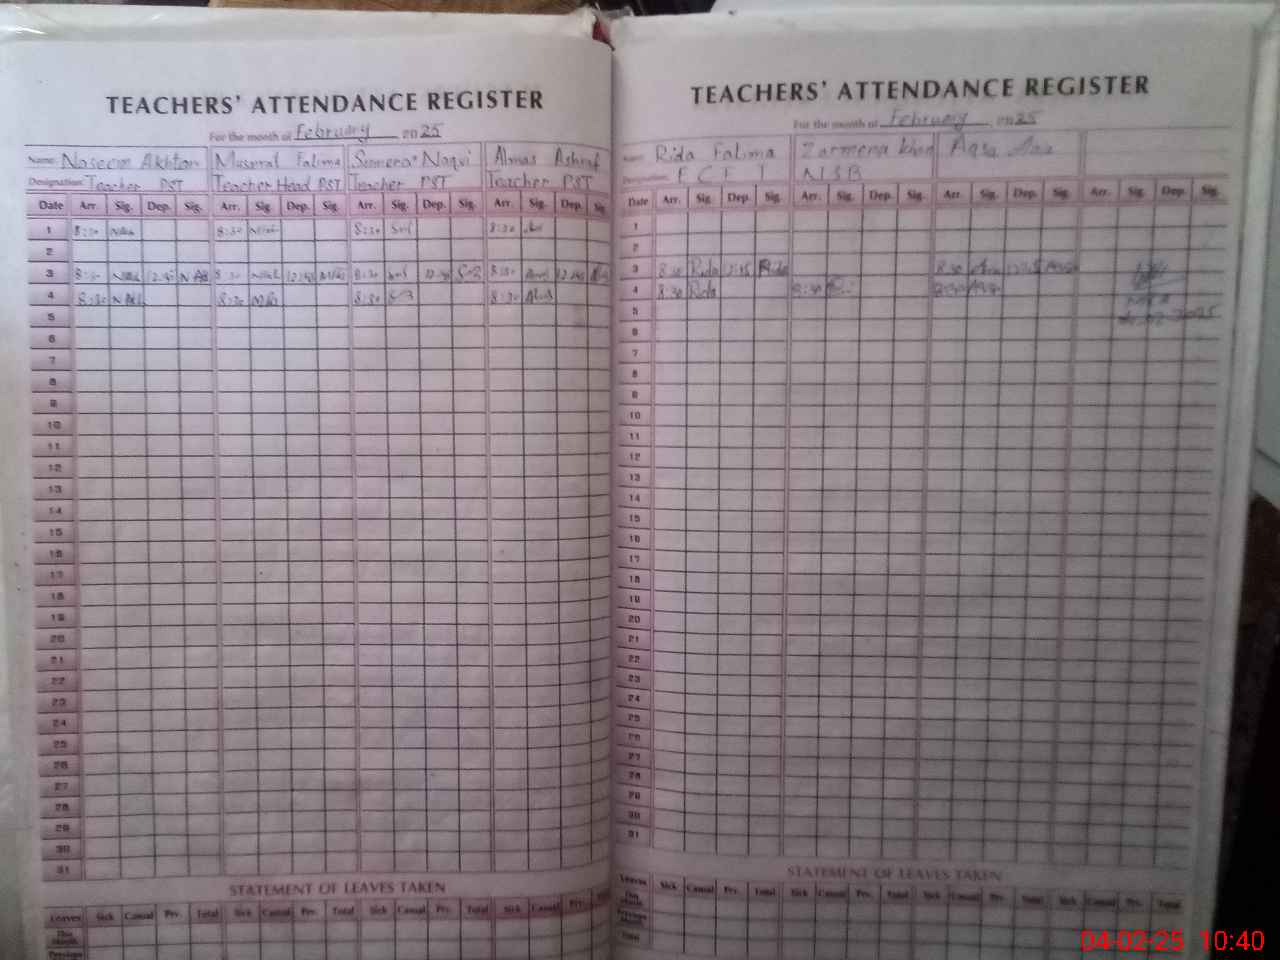 TEACHERS' ATTENDANCE REGISTER
For the month of February 2025
Name Naseem Akhtar Musarat Fatima Sumera Naqvi Almas Ashraf
Designation Teacher PST Teacher Head PST Teacher PST Teacher PST
Date Arr. Sig. Dep. Sig. Arr. Sig. Dep. Sig. Arr. Sig. Dep. Sig. Arr. Sig. Dep. Sig.
1 8:30 8:30 8:30 8:30
2
3 8:30 12:45 8:30 12:45 8:30 12:45 8:30 12:45
4 8:30 8:30 8:30 8:30
5
6
7
8
9
10
11
12
13
14
15
16
17
18
19
20
21
22
23
24
25
26
27
28
29
30
31
STATEMENT OF LEAVES TAKEN
Leaves Sick Casual Prv. Total Sick Casual Prv. Total Sick Casual Prv. Total Sick Casual Prv. Total
This Month
Previous
TEACHERS' ATTENDANCE REGISTER
For the month of February 2025
Name Rida Fatima Zarmena Khan Aqsa
Designation
Date Arr. Sig. Dep. Sig. Arr. Sig. Dep. Sig. Arr. Sig. Dep. Sig. Arr. Sig. Dep. Sig.
1
2
3 8:30 Rida 12:45 Rida 8:30 12:45
4 8:30 Rida 8:30 8:30
5
6
7
8
9
10
11
12
13
14
15
16
17
18
19
20
21
22
23
24
25
26
27
28
29
30
31
STATEMENT OF LEAVES TAKEN
Leaves Sick Casual Prv. Total Sick Casual Prv. Total Sick Casual Prv. Total Sick Casual Prv. Total
This Month
Previous Month
Total
04-02-25 10:40